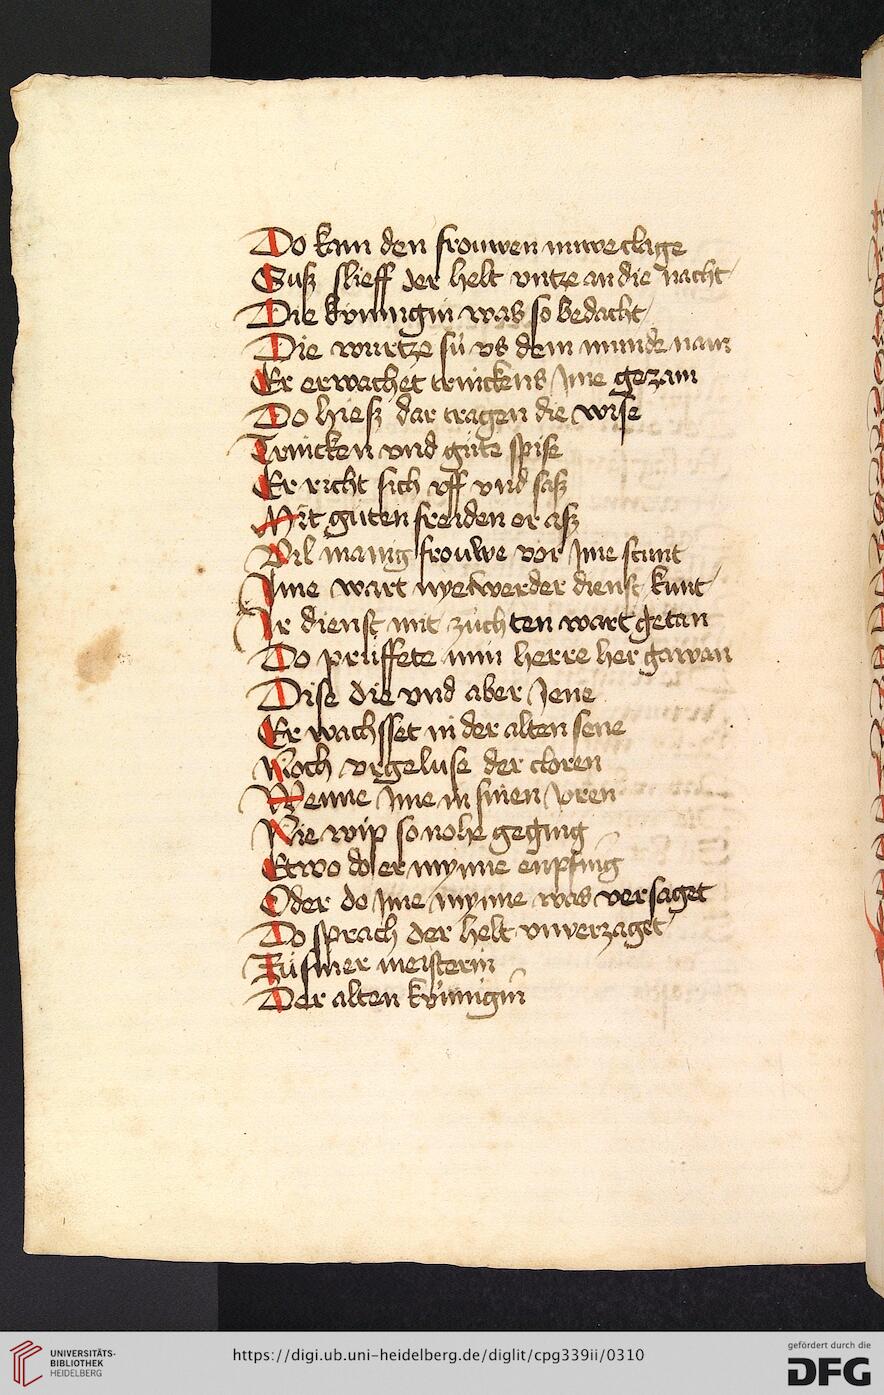 Do kam den frouwen nuwe clage
Suß slieff der helt vntze an die nacht
Die kúnnigin was so bedacht
Die wurtze sú vs dem munde nam
Er erwachet trinckens Jme gezam
Do hieß dar tragen die wise
Trincken vnd gúte spise
Er richt sich vff vnd saß
Mit gúten freiden er aß
Vil manig frouwe vor Jme stunt
Jme wart nye werder dienst kunt
Jr dienst mit zúchten wart getan
Do prúffete min herre her gawan
Dise die vnd aber Jene
Er wachsset in der alten sene
Noch orgeluse der cloren
Wenne Jme in sinen Joren
Nie wip so nohe geging
Etwo do er mynne enpfing
Oder do Jme mynne was versaget
Do sprach der helt vnverzaget
Zú siner meisterin
Der alten kúnnigin
UNIVERSITÄTS-
BIBLIOTHEK
HEIDELBERG
https://digi.ub.uni-heidelberg.de/diglit/cpg339ii/0310
gefördert durch die
DFG